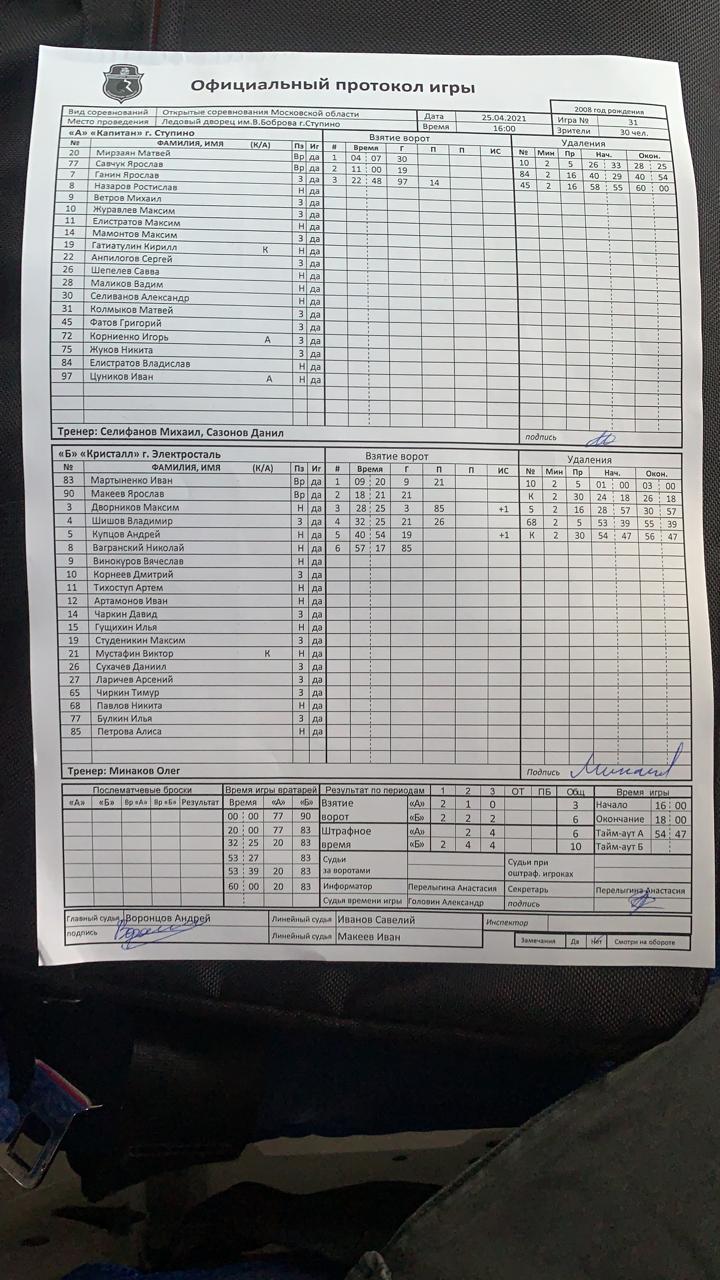 Официальный протокол игры
2008 год рождения
Вид соревнований Открытые соревнования Московской области Дата 25.04.2021 Игра № 31
Место проведения Ледовый дворец им.В.Боброва г.Ступино Время 16:00 Зрители 30 чел.
«А» «Капитан» г. Ступино Взятие ворот Удаления
№ ФАМИЛИЯ, ИМЯ (К/А) Пз Иг # Время Г П П ИС № Мин Пр Нач. Окон.
20 Мирзаян Матвей Вр да 1 04 : 07 30 10 2 5 26 : 33 28 : 25
77 Савчук Ярослав Вр да 2 11 : 00 19 84 2 16 40 : 29 40 : 54
7 Ганин Ярослав З да 3 22 : 48 97 14 45 2 16 58 : 55 60 : 00
8 Назаров Ростислав Н да
9 Ветров Михаил З да
10 Журавлев Максим З да
11 Елистратов Максим Н да
14 Мамонтов Максим З да
19 Гатиатулин Кирилл К Н да
22 Анпилогов Сергей З да
26 Шепелев Савва Н да
28 Маликов Вадим Н да
30 Селиванов Александр Н да
31 Колмыков Матвей З да
45 Фатов Григорий З да
72 Корниенко Игорь А З да
75 Жуков Никита З да
84 Елистратов Владислав Н да
97 Цуников Иван А Н да
Тренер: Селифанов Михаил, Сазонов Данил подпись
«Б» «Кристалл» г. Электросталь Взятие ворот Удаления
№ ФАМИЛИЯ, ИМЯ (К/А) Пз Иг # Время Г П П ИС № Мин Пр Нач. Окон.
83 Мартыненко Иван Вр да 1 09 : 20 9 21 10 2 5 01 : 00 03 : 00
90 Макеев Ярослав Вр да 2 18 : 21 21 К 2 30 24 : 18 26 : 18
3 Дворников Максим Н да 3 28 : 25 3 85 +1 5 2 16 28 : 57 30 : 57
4 Шишов Владимир З да 4 32 : 25 21 26 68 2 5 53 : 39 55 : 39
5 Купцов Андрей Н да 5 40 : 54 19 +1 К 2 30 54 : 47 56 : 47
8 Вагранский Николай Н да 6 57 : 17 85
9 Винокуров Вячеслав Н да
10 Корнеев Дмитрий З да
11 Тихоступ Артем Н да
12 Артамонов Иван Н да
14 Чаркин Давид З да
15 Гущихин Илья Н да
19 Студеникин Максим З да
21 Мустафин Виктор К Н да
26 Сухачев Даниил З да
27 Ларичев Арсений З да
65 Чиркин Тимур З да
68 Павлов Никита Н да
77 Булкин Илья З да
85 Петрова Алиса Н да
Тренер: Минаков Олег Подпись Минаков
Послематчевые броски Время игры вратарей Результат по периодам 1 2 3 ОТ ПБ Общ Время игры
«А» «Б» Вр «А» Вр «Б» Результат Время «А» «Б» Взятие ворот «А» 2 1 0 3 Начало 16 : 00
00 : 00 77 90 «Б» 2 2 2 6 Окончание 18 : 00
20 : 00 77 83 Штрафное время «А» 2 4 6 Тайм-аут А 54 : 47
32 : 25 20 83 «Б» 2 4 4 10 Тайм-аут Б
53 : 27 83 Судьи за воротами Судьи при оштраф. игроках
53 : 39 20 83
60 : 00 20 83 Информатор Перелыгина Анастасия Секретарь Перелыгина Анастасия
Судья времени игры Головин Александр подпись
Главный судья Воронцов Андрей Линейный судья Иванов Савелий Инспектор
подпись Линейный судья Макеев Иван Замечания Да Нет Смотри на обороте